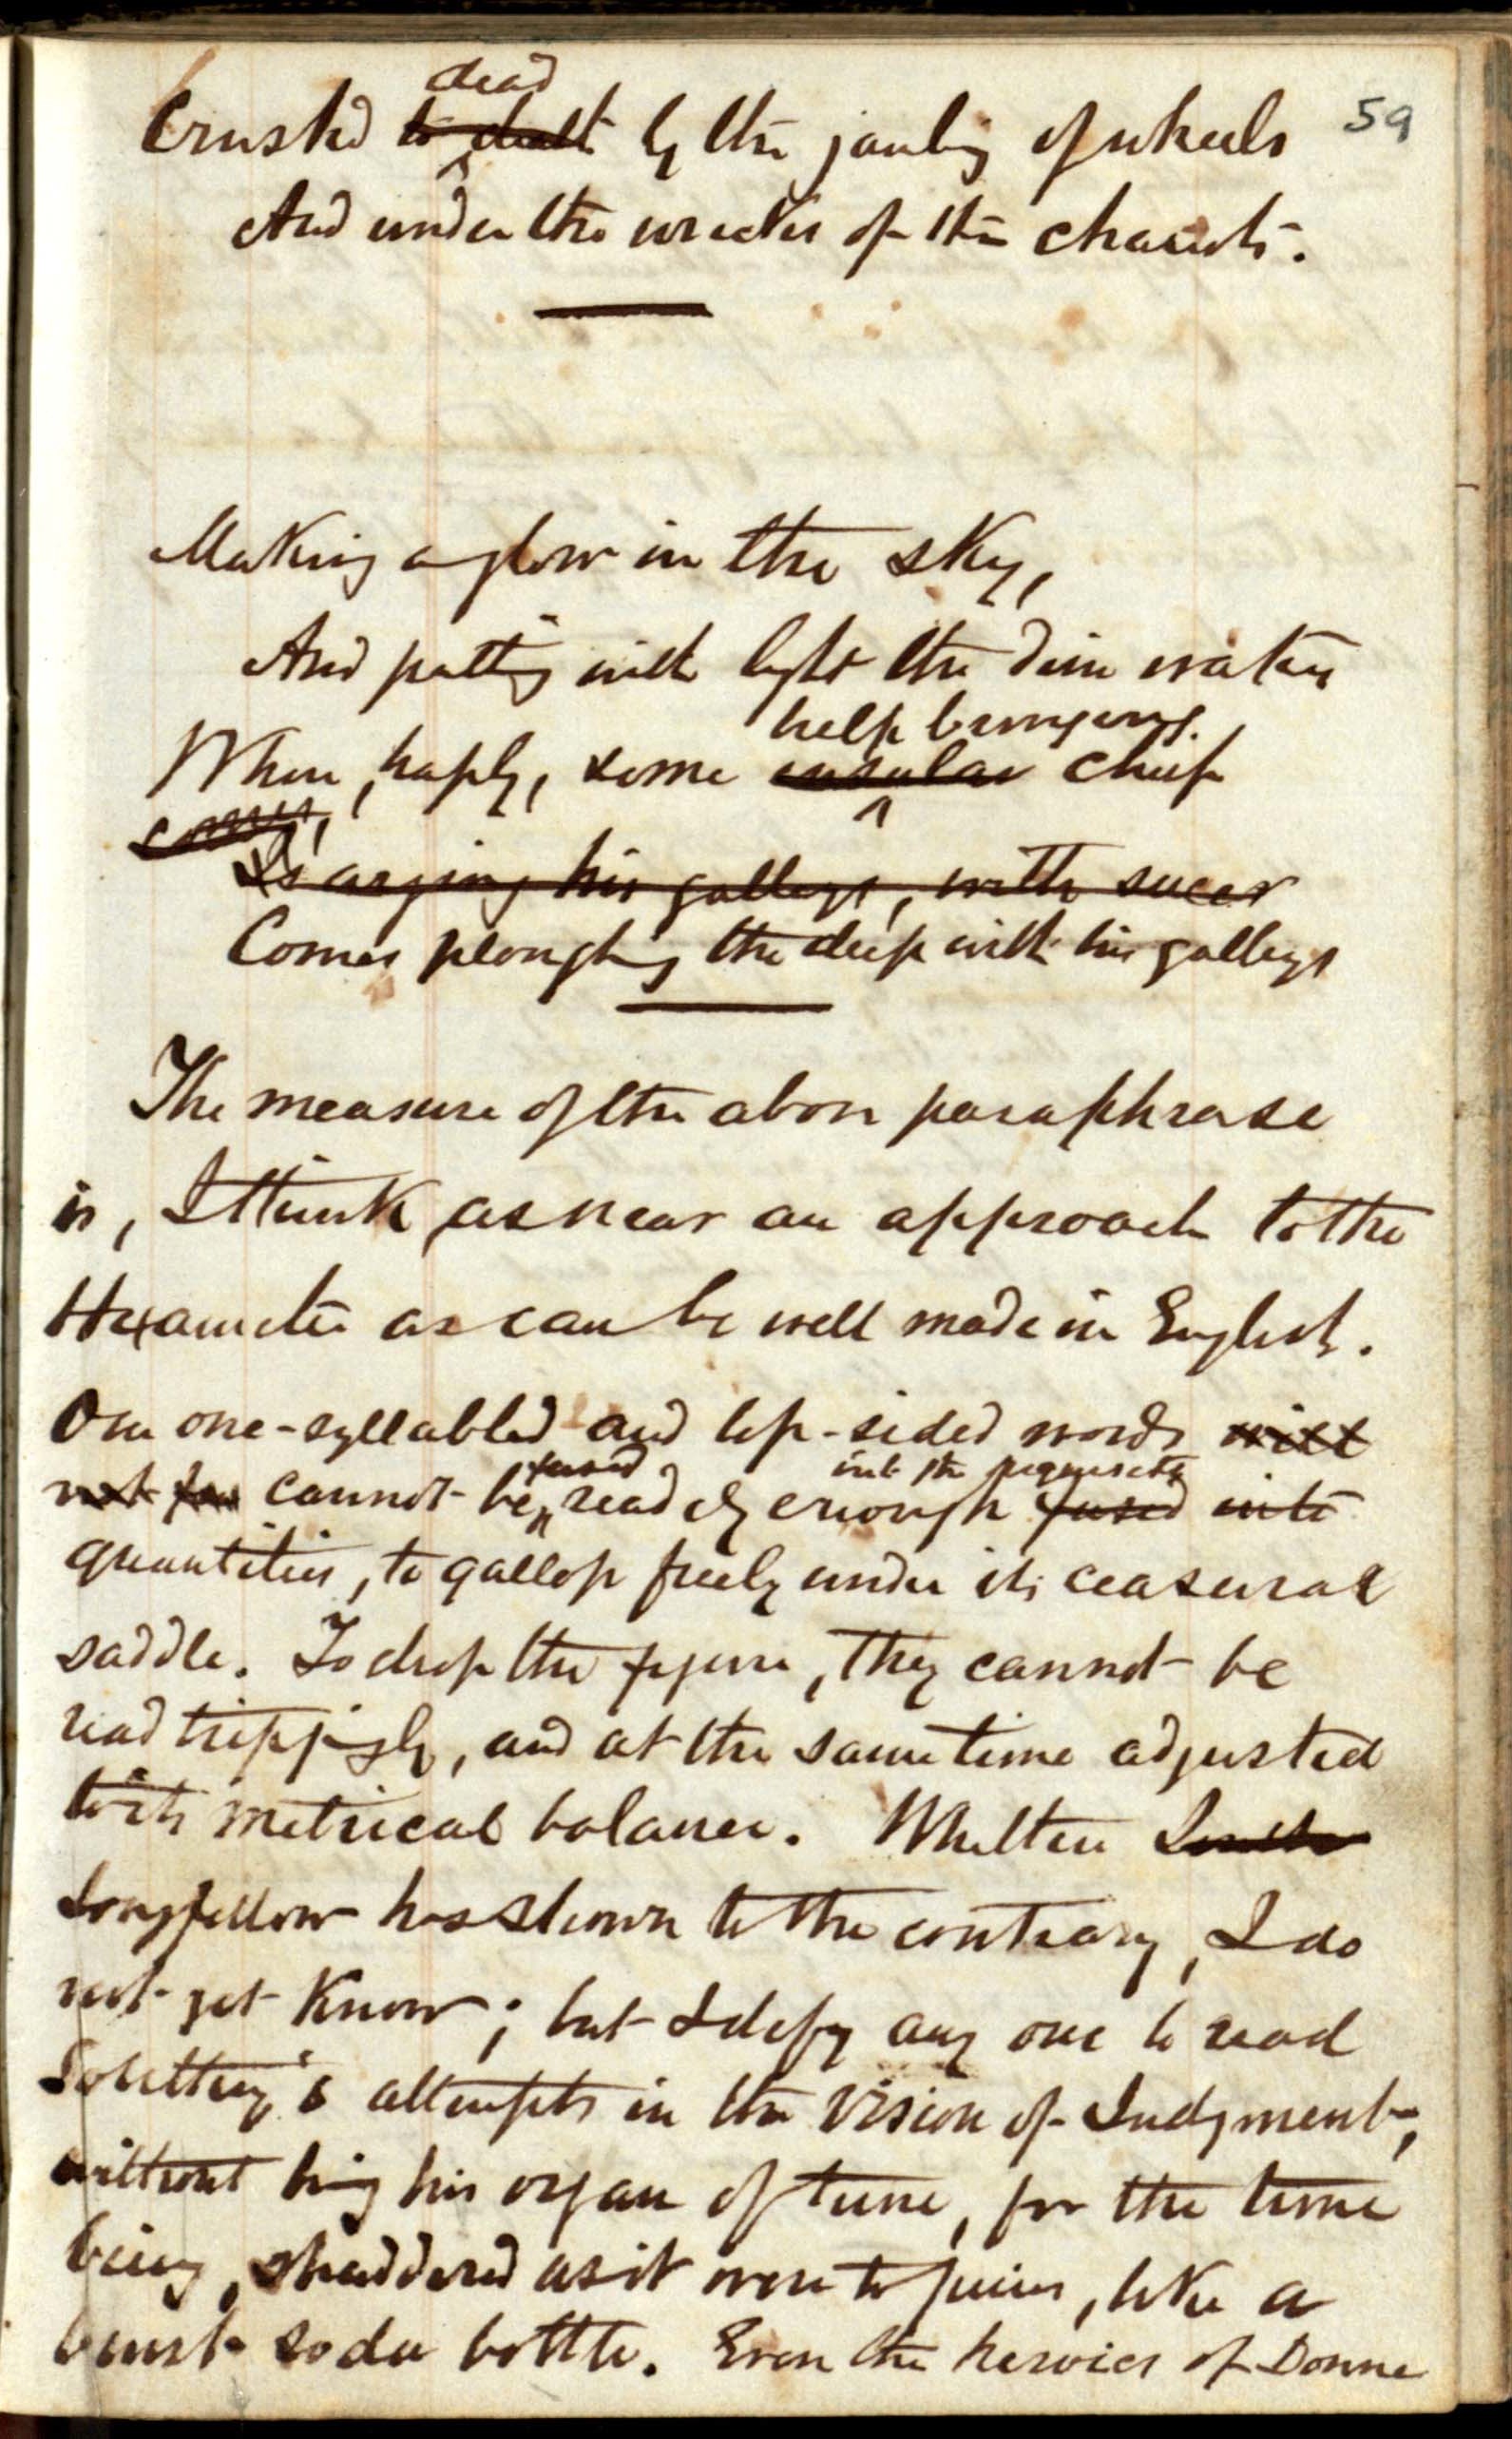 59
dead
Crushed to death by the jambing of wheels
And under the wrecks of the chariots.
Making a glow in the sky,
And patting with light the dim waters
help bringing.
When, haply, some insular chief
comes,
Is urging his galleys, with succor
Comes ploughing the deep with his galleys
The measure of the above paraphrase
is, I think as near an approach to the
Hexameter as can be well made in English.
Our one-syllabled and lop-sided words will
fused into the requisite
not fus cannot be readily enough fused into
quantities, to gallop freely under its ceasural
saddle. To drop the figure, they cannot be
read trippingly, and at the same time adjusted
to its metrical balance. Whether
Longfellow has shown to the contrary, I do
not yet know; but I defy any one to read
Southey's attempts in the Vision of Judgment,
without his organ of tune, for the time
being, shaddered as it were to pieces, like a
burst soda bottle. Even the heroics of Donne